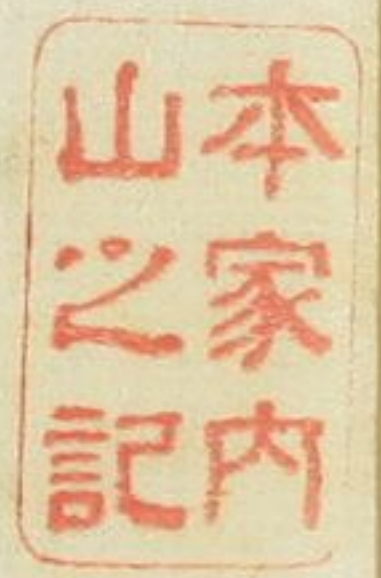 本家内
山之記